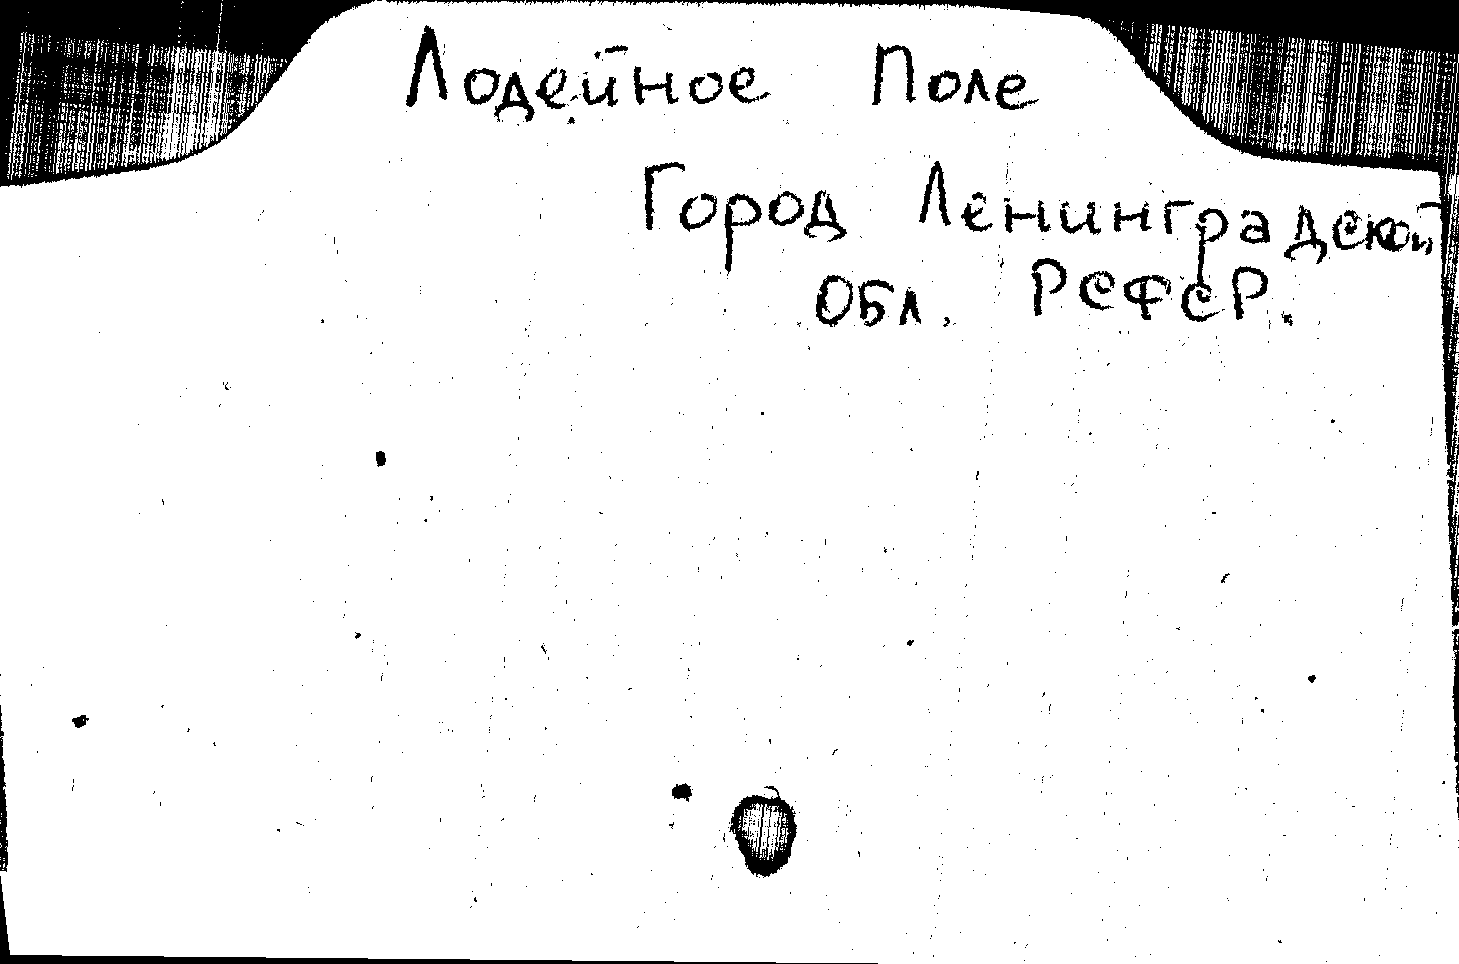 Лодейное Поле
Город Ленинградской
Обл. РСФСР.